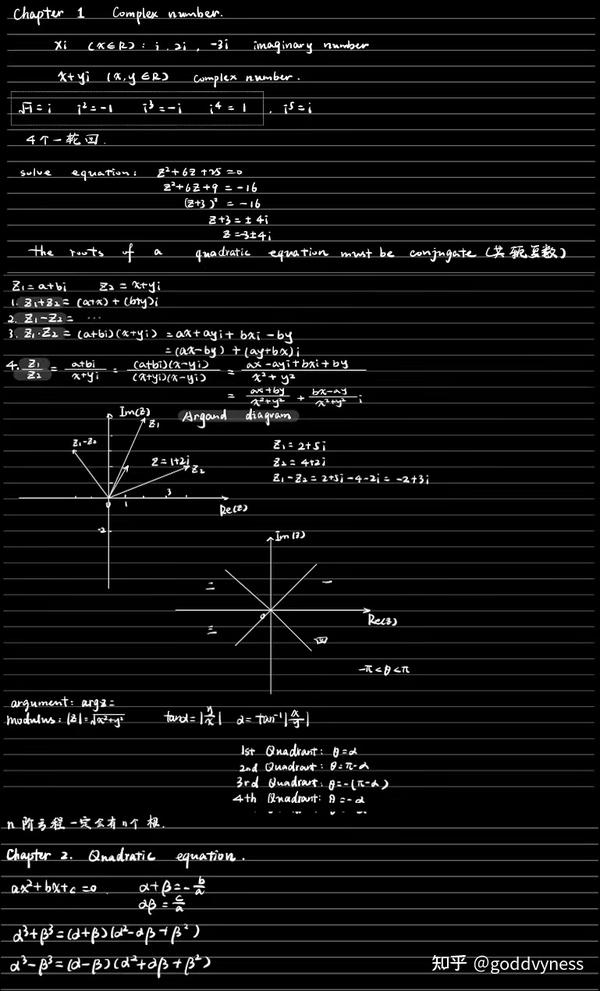 Chapter 1 Complex number.
xi (x∈R): i, 2i, -3i imaginary number
x+yi (x,y∈R) complex number.
√-1=i i²=-1 i³=-i i⁴=1, i⁵=i
4个一轮回.
solve equation: z²+6z+25=0
z²+6z+9=-16
(z+3)²=-16
z+3=±4i
z=-3±4i
the roots of a quadratic equation must be conjugate (共轭复数)
z₁=a+bi z₂=x+yi
1. z₁+z₂=(a+x)+(b+y)i
2. z₁-z₂= ...
3. z₁·z₂=(a+bi)(x+yi)=ax+ayi+bxi-by
=(ax-by)+(ay+bx)i
4. z₁/z₂=a+bi/x+yi=(a+bi)(x-yi)/(x+yi)(x-yi)=ax-ayi+bxi+by/x²+y²
=ax+by/x²+y²+bx-ay/x²+y² i
Im(z) Argand diagram
z₁
z₁-z₂ z=1+2i z₂
z₁=2+5i
z₂=4+2i
z₁-z₂=2+5i-4-2i=-2+3i
0 1 3 Re(z)
-2
Im(z)
二 一
0 Re(z)
三 四
-π<θ<π
argument: argz=
modulus: |z|=√x²+y² tanα=|y/x| α=tan⁻¹|x/y|
1st Quadrant: θ=α
2nd Quadrant: θ=π-α
3rd Quadrant: θ=-(π-α)
4th Quadrant: θ=-α
n阶方程一定会有n个根.
Chapter 2. Quadratic equation.
ax²+bx+c=0 α+β=-b/a
αβ=c/a
α³+β³=(α+β)(α²-αβ+β²)
α³-β³=(α-β)(α²+αβ+β²)
知乎 @goddvyness